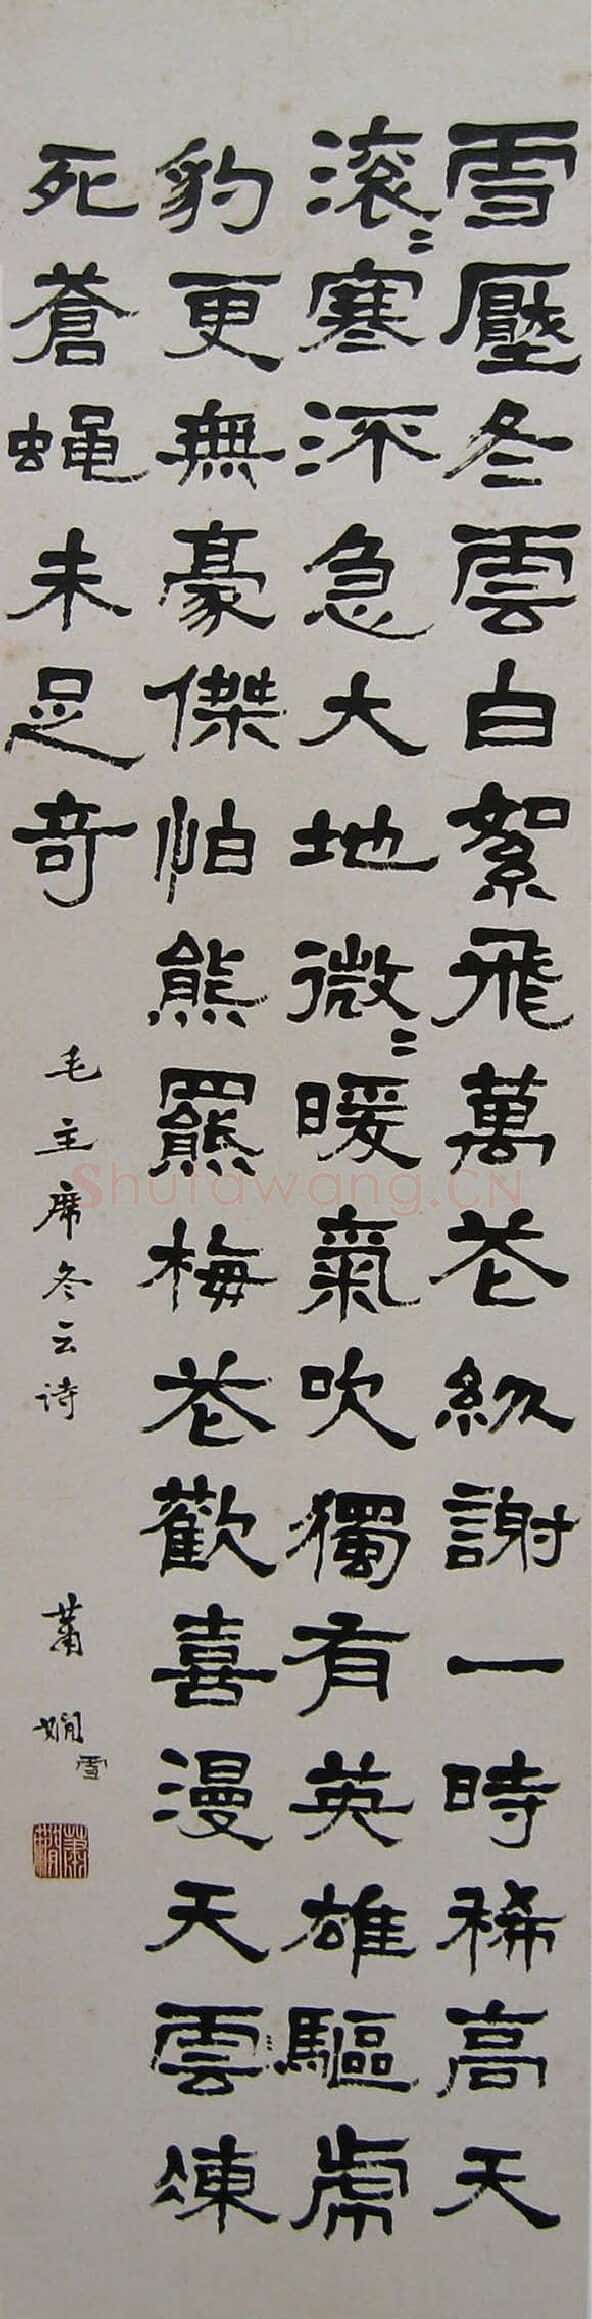 雪壓冬雲白絮飛萬花紛謝一時稀高天
滾〻寒流急大地微〻暖氣吹獨有英雄驅虎
豹更無豪傑怕熊羆梅花歡喜漫天雲凍
死蒼蝇未足奇
毛主席冬云诗
蕭嫻
雪
蕭嫻
Shufawang.CN